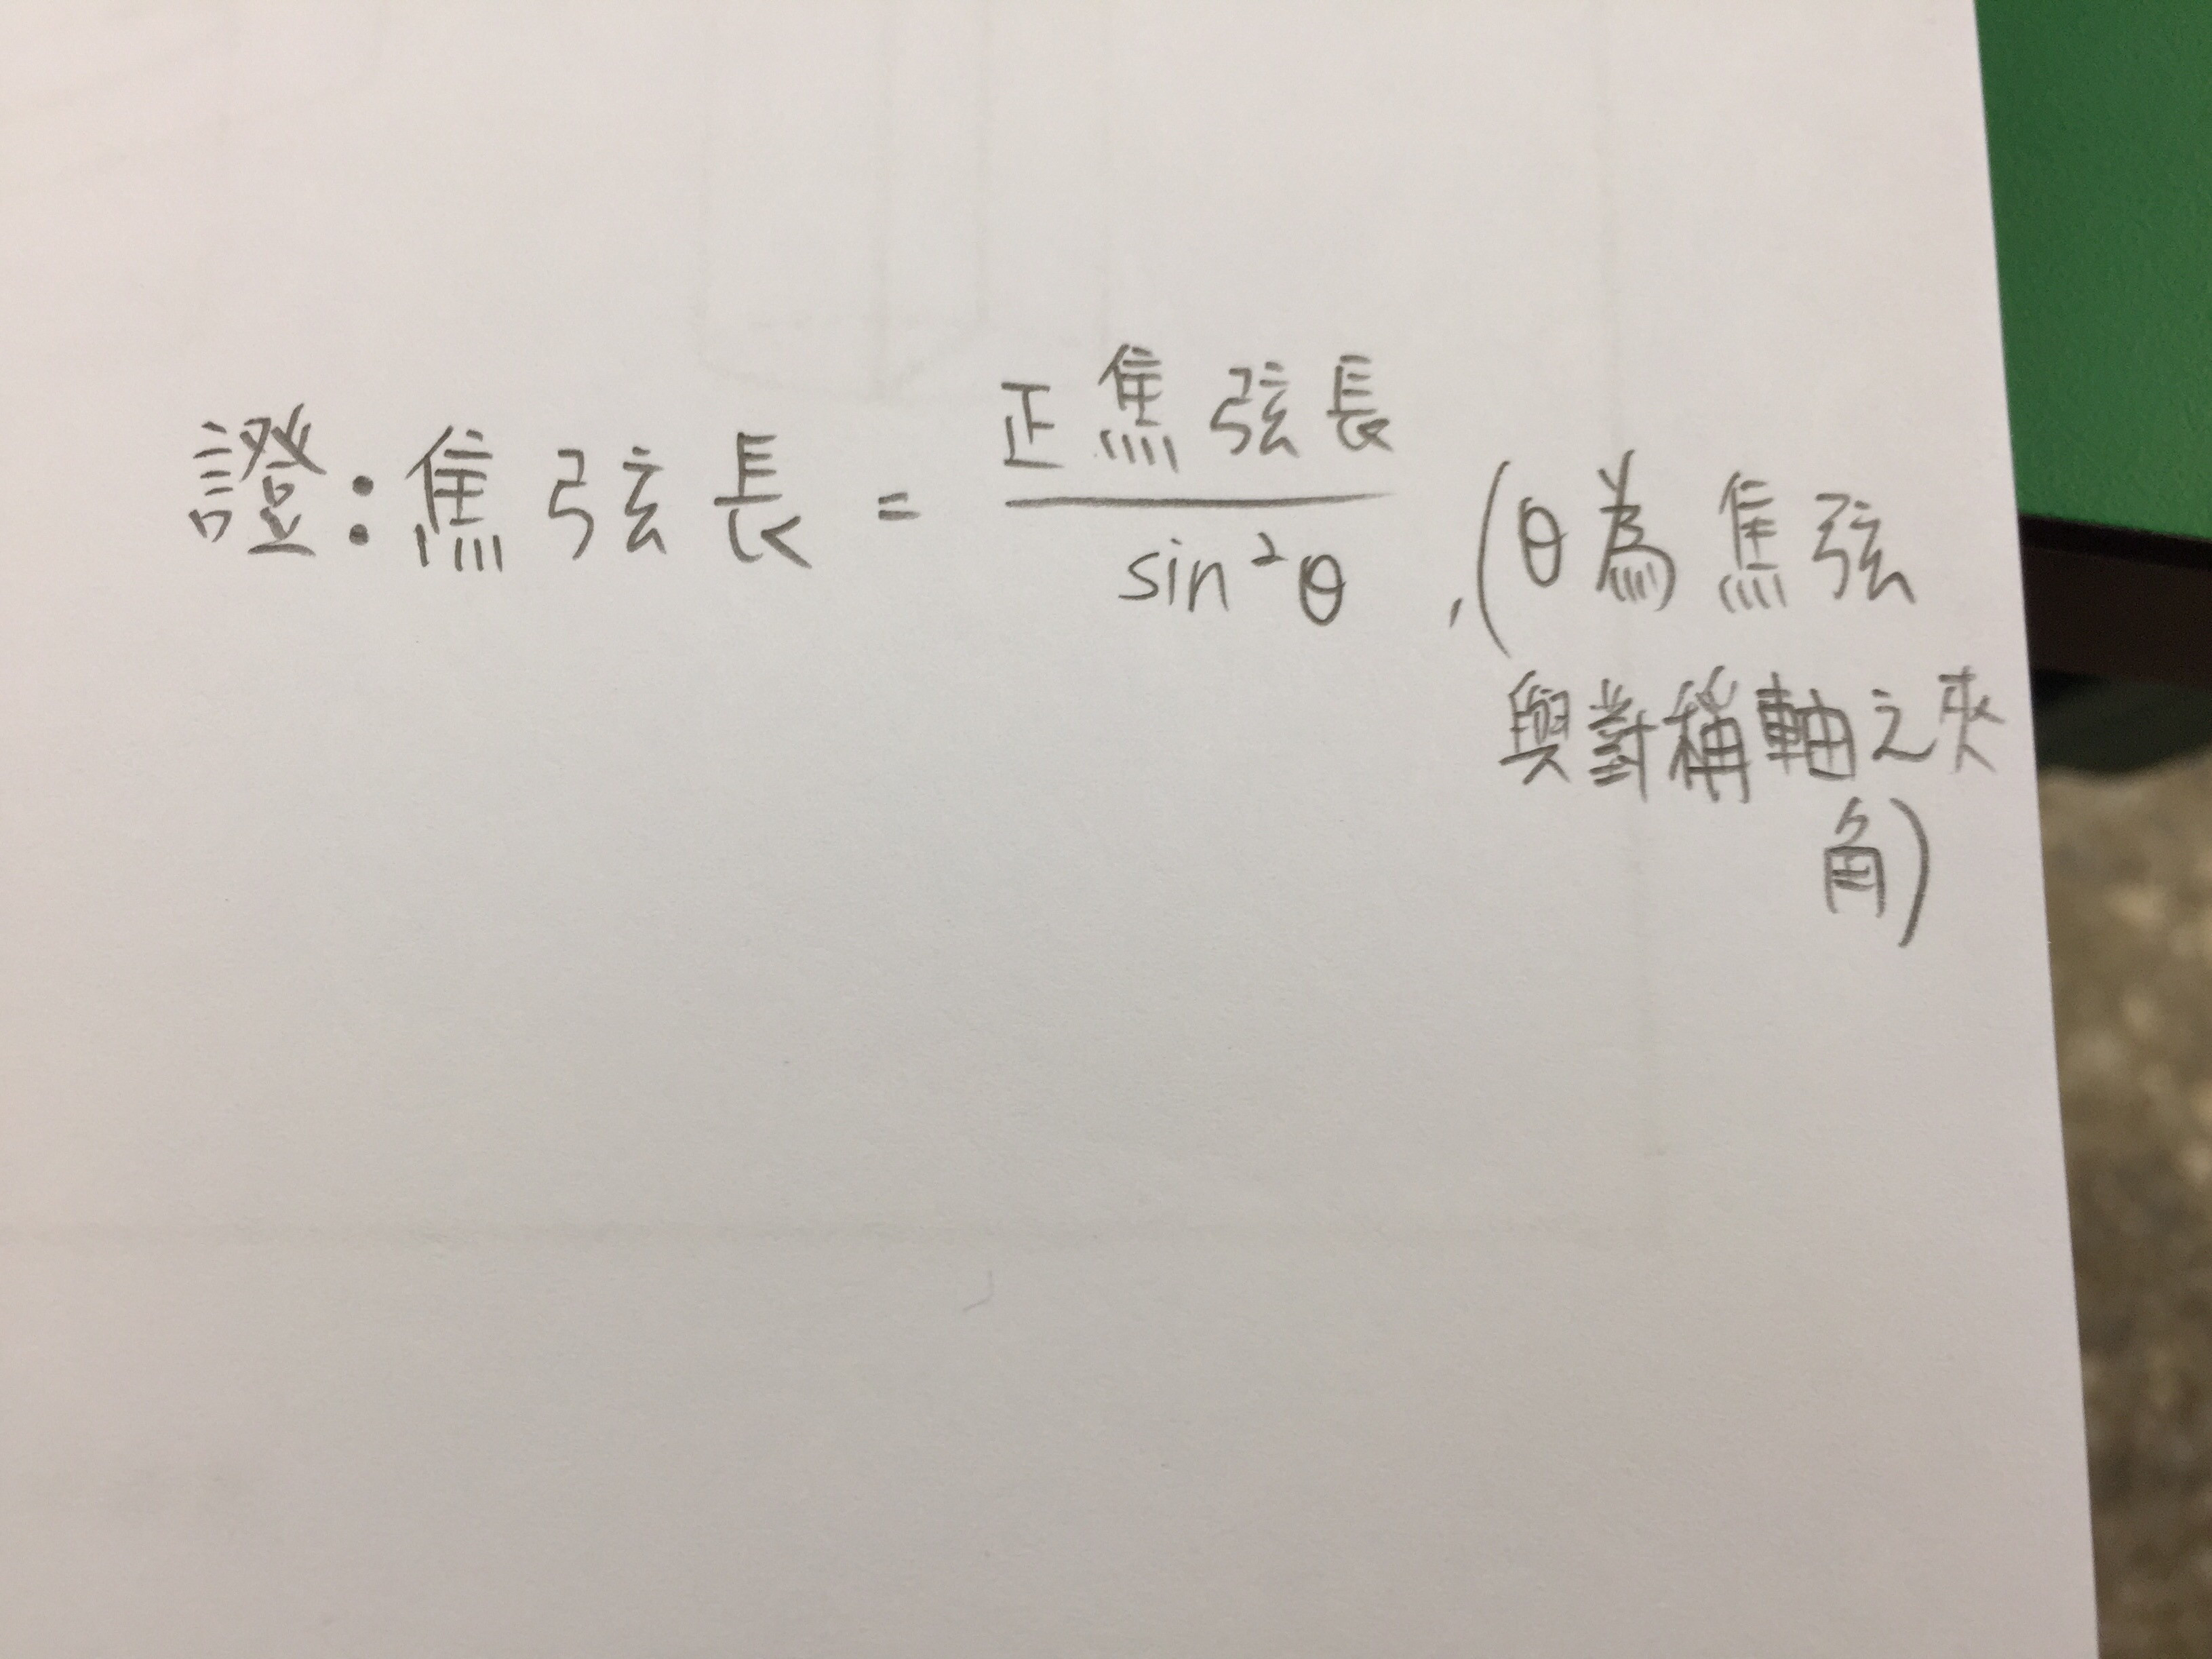 證:焦弦長 = 正焦弦長 / sin²θ ,(θ為焦弦
與對稱軸之夾
角)